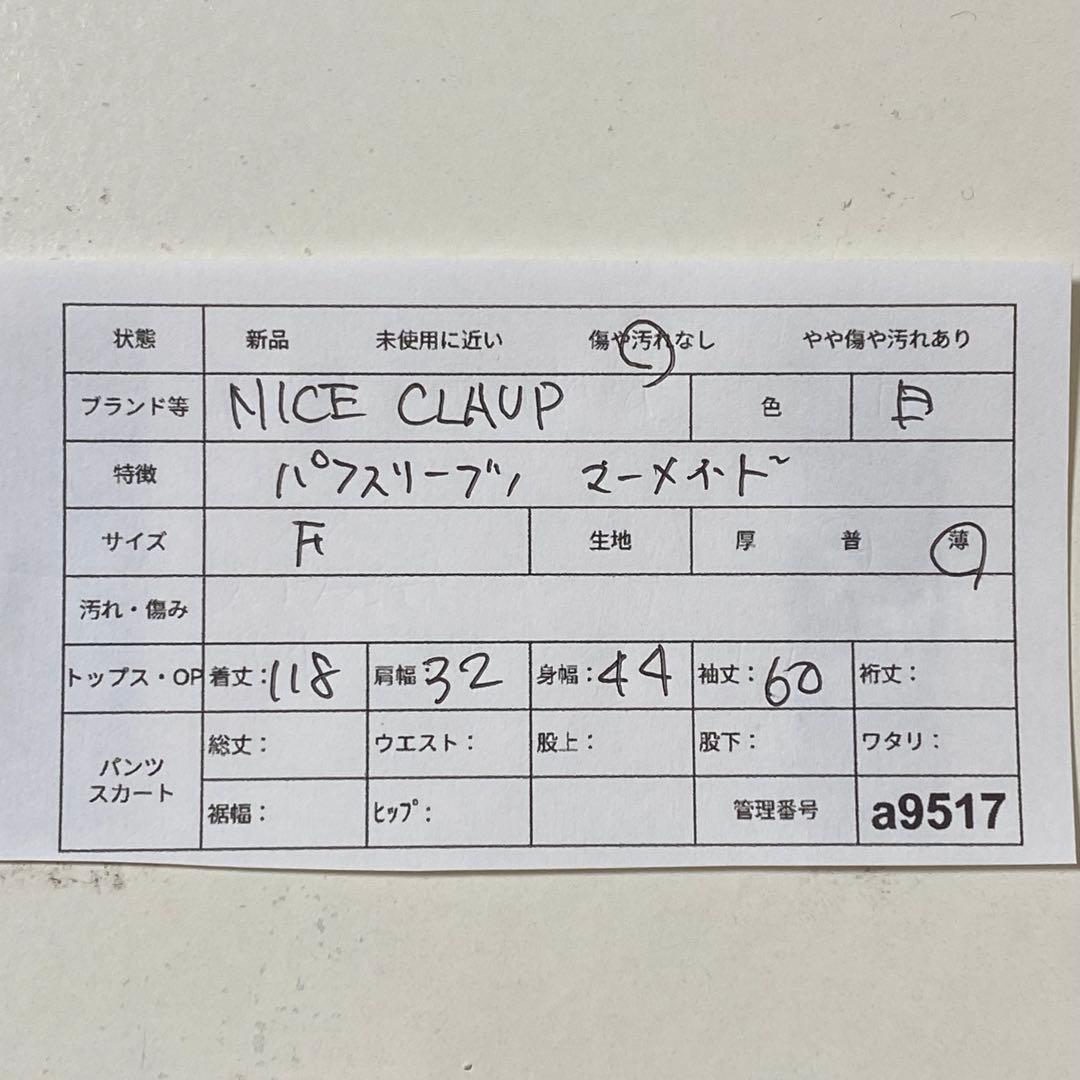 状態 新品 未使用に近い 傷や汚れなし やや傷や汚れあり
ブランド等 NICE CLAUP 色
特徴 パフスリーブ マーメイド
サイズ F 生地 厚 普 薄
汚れ・傷み
トップス・OP 着丈:118 肩幅:32 身幅:44 袖丈:60 裄丈:
パンツ スカート
総丈: ウエスト: 股上: 股下: ワタリ:
裾幅: ヒップ: 管理番号 a9517